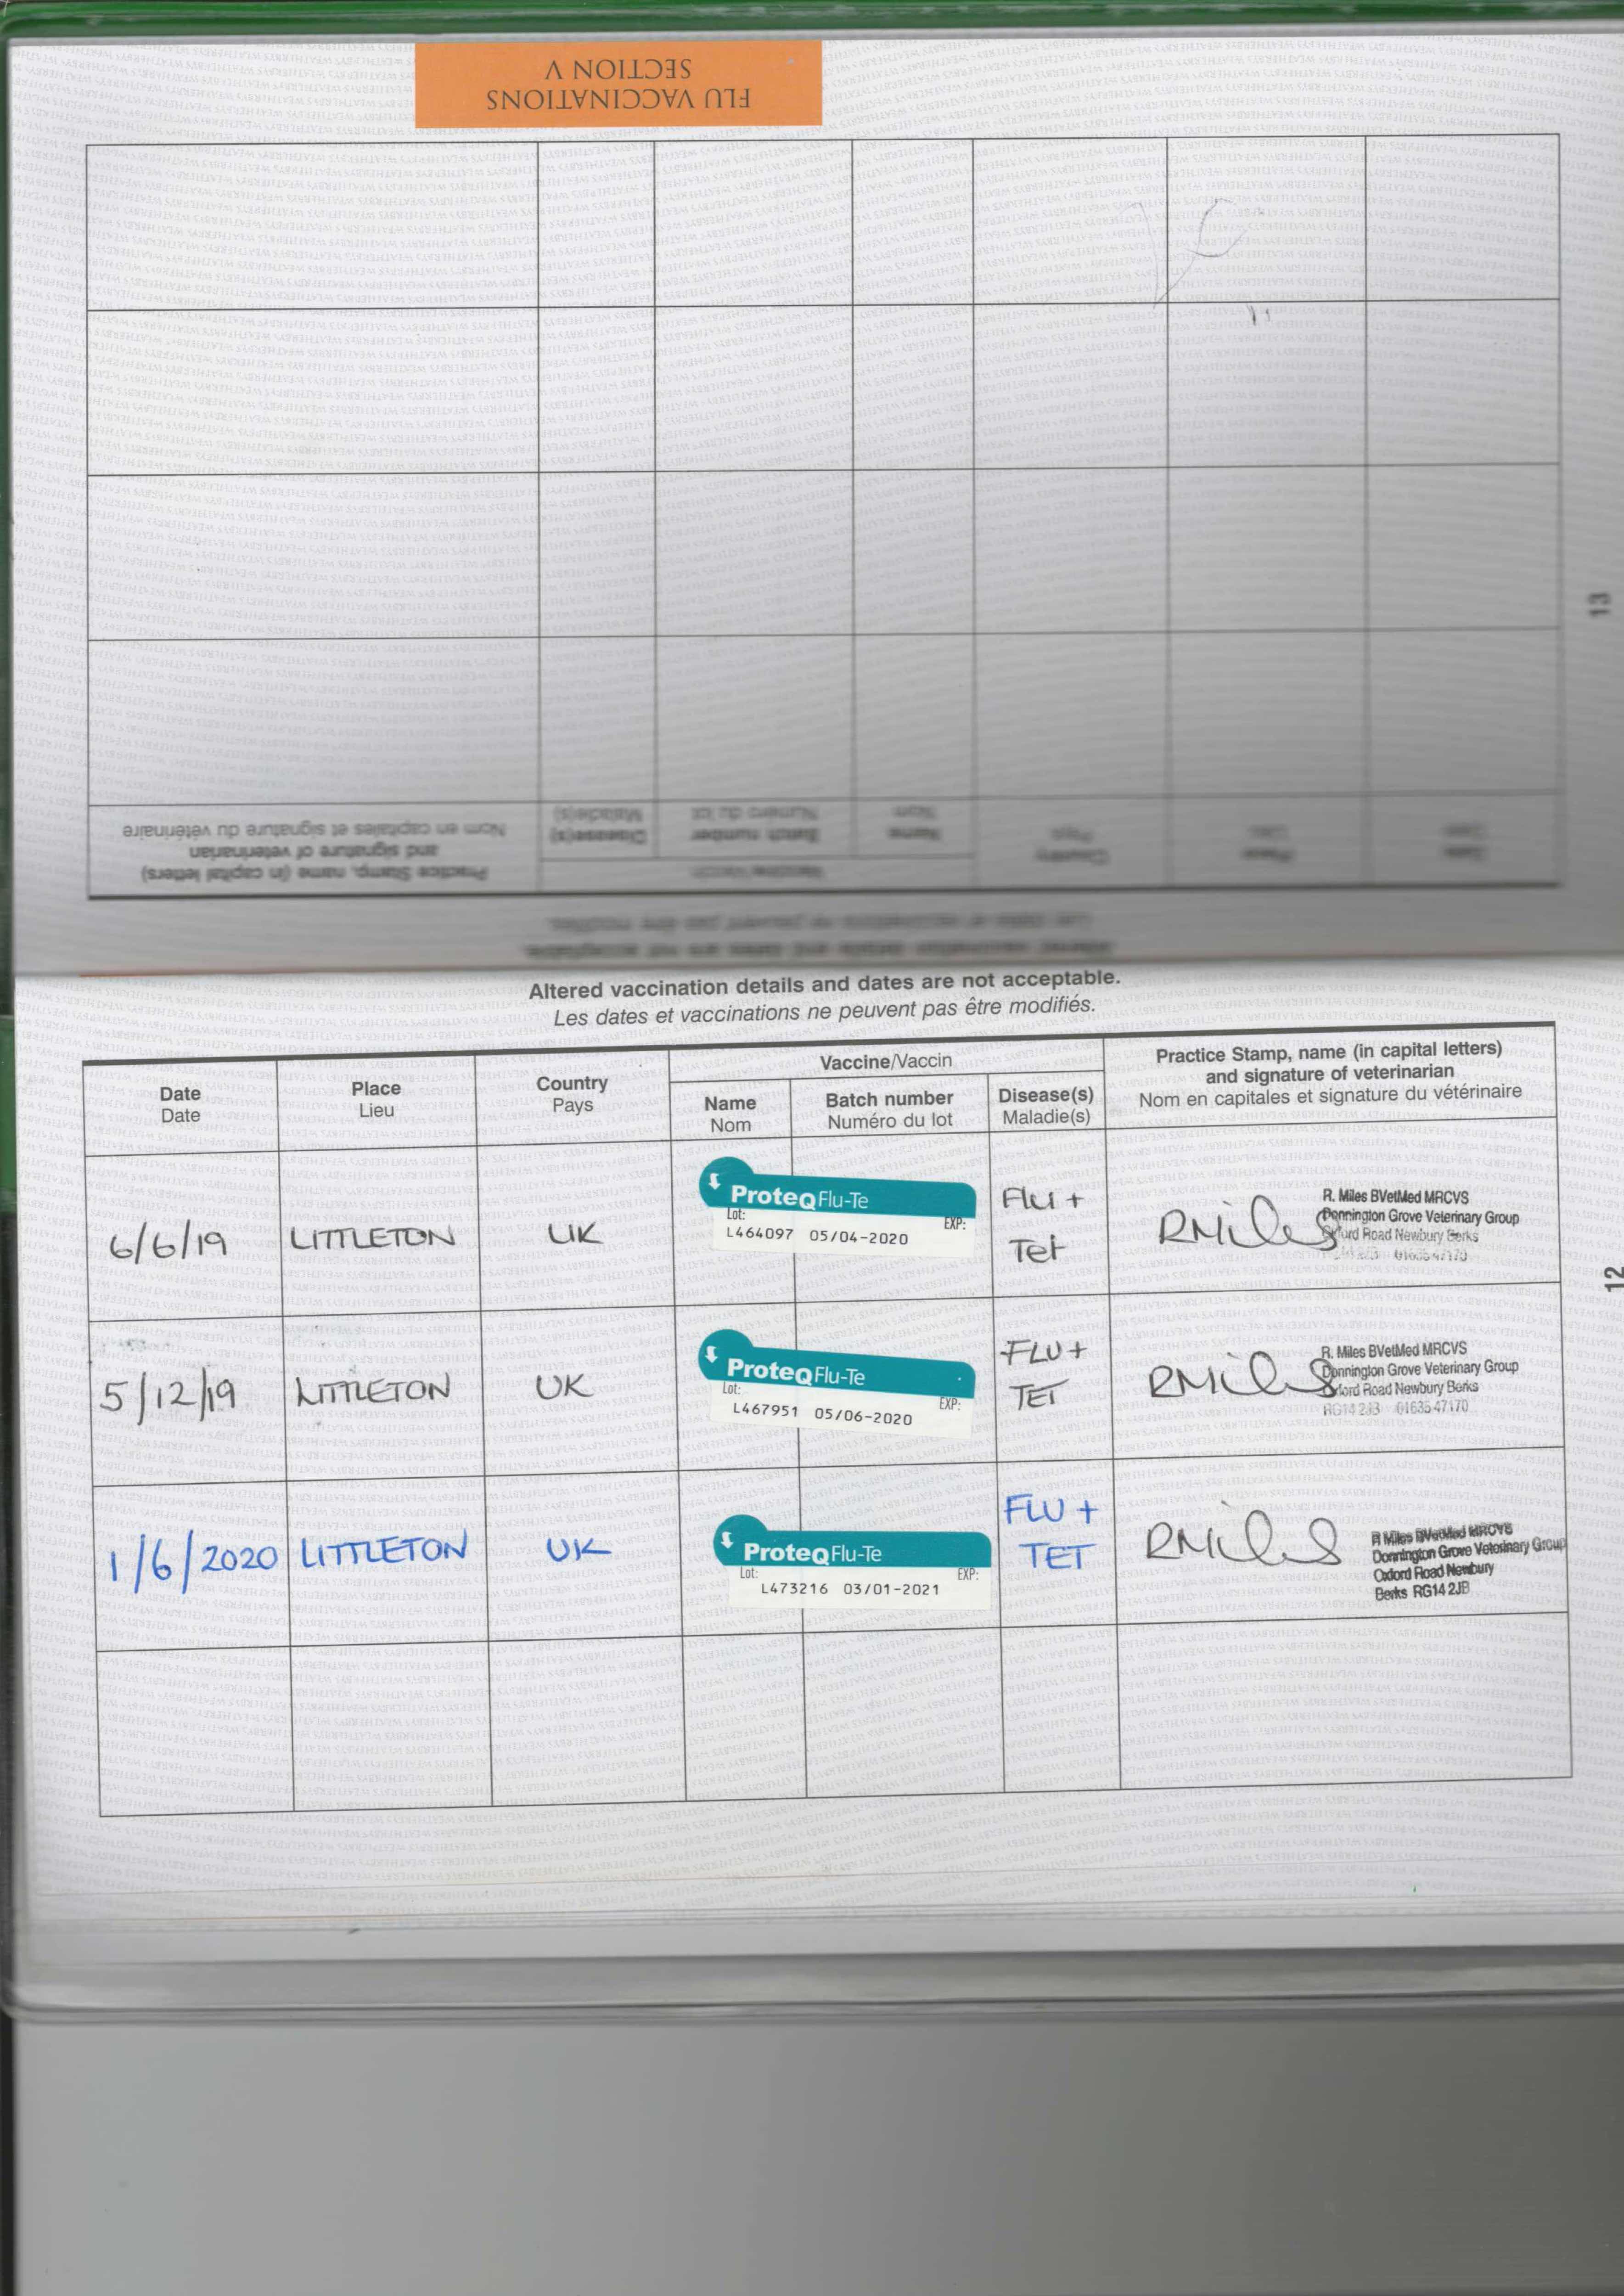 FLU VACCINATIONS
SECTION V
13
Practice Stamp, name (in capital letters)
and signature of veterinarian
Nom en capitales et signature du vétérinaire
Vaccine/Vaccin
Disease(s)
Maladie(s)
Batch number
Numéro du lot
Name
Nom
Country
Pays
Place
Lieu
Date
Date
Altered vaccination details and dates are not acceptable.
Les dates et vaccinations ne peuvent pas être modifiés.
Altered vaccination details and dates are not acceptable.
Les dates et vaccinations ne peuvent pas être modifiés.
Date
Date
Place
Lieu
Country
Pays
Vaccine/Vaccin
Name
Nom
Batch number
Numéro du lot
Disease(s)
Maladie(s)
Practice Stamp, name (in capital letters)
and signature of veterinarian
Nom en capitales et signature du vétérinaire
6/6/19
LITTLETON
UK
ProteqFlu-Te
Lot: EXP:
L464097 05/04-2020
Flu +
Tet
RMiles
R. Miles BVetMed MRCVS
Donnington Grove Veterinary Group
Oxford Road Newbury Berks
12
5/12/19
LITTLETON
UK
ProteqFlu-Te
Lot: EXP:
L467951 05/06-2020
FLU +
TET
RMiles
R. Miles BVetMed MRCVS
Donnington Grove Veterinary Group
Oxford Road Newbury Berks
RG14 2JB 01635 47170
1/6/2020
LITTLETON
UK
ProteqFlu-Te
Lot: EXP:
L473216 03/01-2021
FLU +
TET
RMiles
R Miles BVetMed MRCVS
Donnington Grove Veterinary Group
Oxford Road Newbury
Berks RG14 2JB